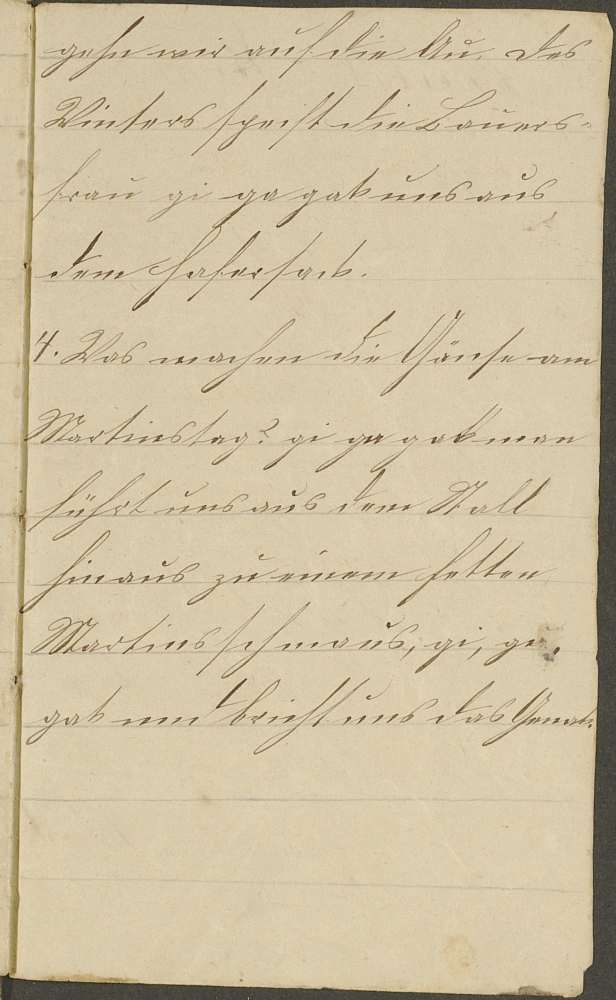 gehn wir auf die Au. Des
Winters speist die Bauers-
frau gi ga gak uns aus
dem Hafersack.
4. Was machen die Gänse am
Martinstag? gi ga gak man
führt uns aus dem Stall
hinaus zu einem fetten
Martinsschmaus, gi, ga,
gak und bricht uns das Genak.